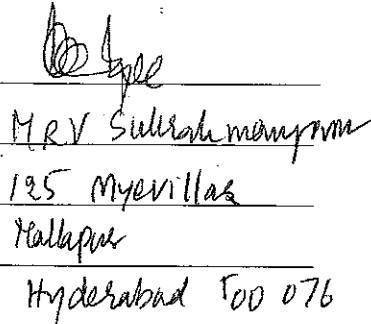 MRV Subrahmanyam
125 Myevillas
Mallapur
Hyderabad 500 076